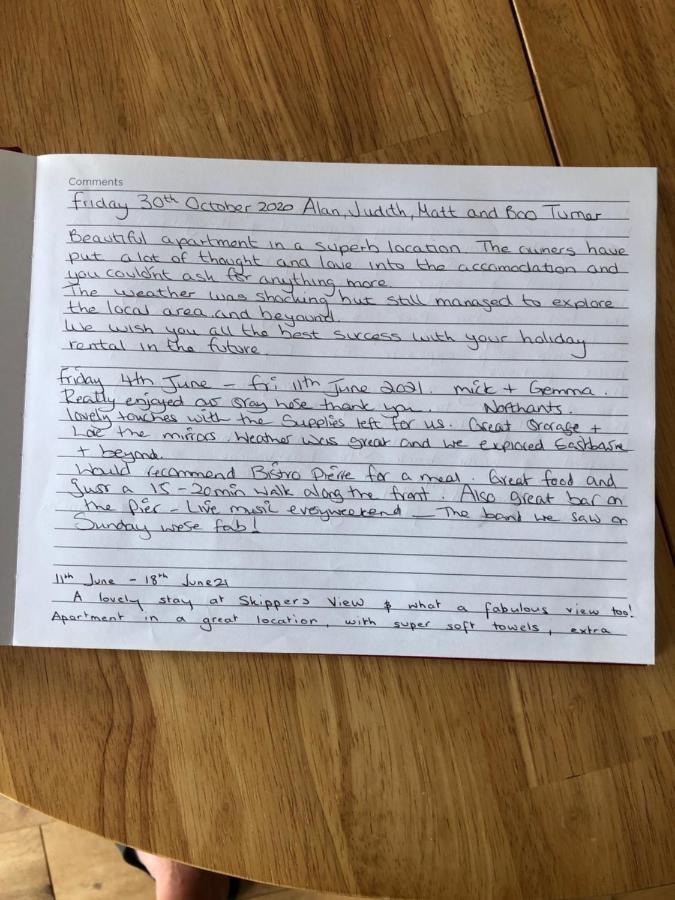 Comments
Friday 30th October 2020 Alan, Judith, Matt and Boo Turner
Beautiful apartment in a superb location. The owners have
put alot of thought and love into the accomodation and
you couldn't ask for anything more.
The weather was shocking but still managed to explore
the local area and beyound.
We wish you all the best success with your holiday
rental in the future.
Friday 4th June - Fri 11th June 2021. Mick + Gemma.
Really enjoyed our stay here thank you. Northants.
lovely touches with the supplies left for us. Great storage +
the mirrors. Weather was great and we explored
+ beyond.
Would recommend Bistro Pierre for a meal. Great food and
Just a 15-20min walk along the front. Also great bar on
the Pier - Live music everyweekend - The band we saw on
Sunday were fab!
11th June - 18th June 21
A lovely stay at Skippers View & what a fabulous view too!
Apartment in a great location, with super soft towels, extra